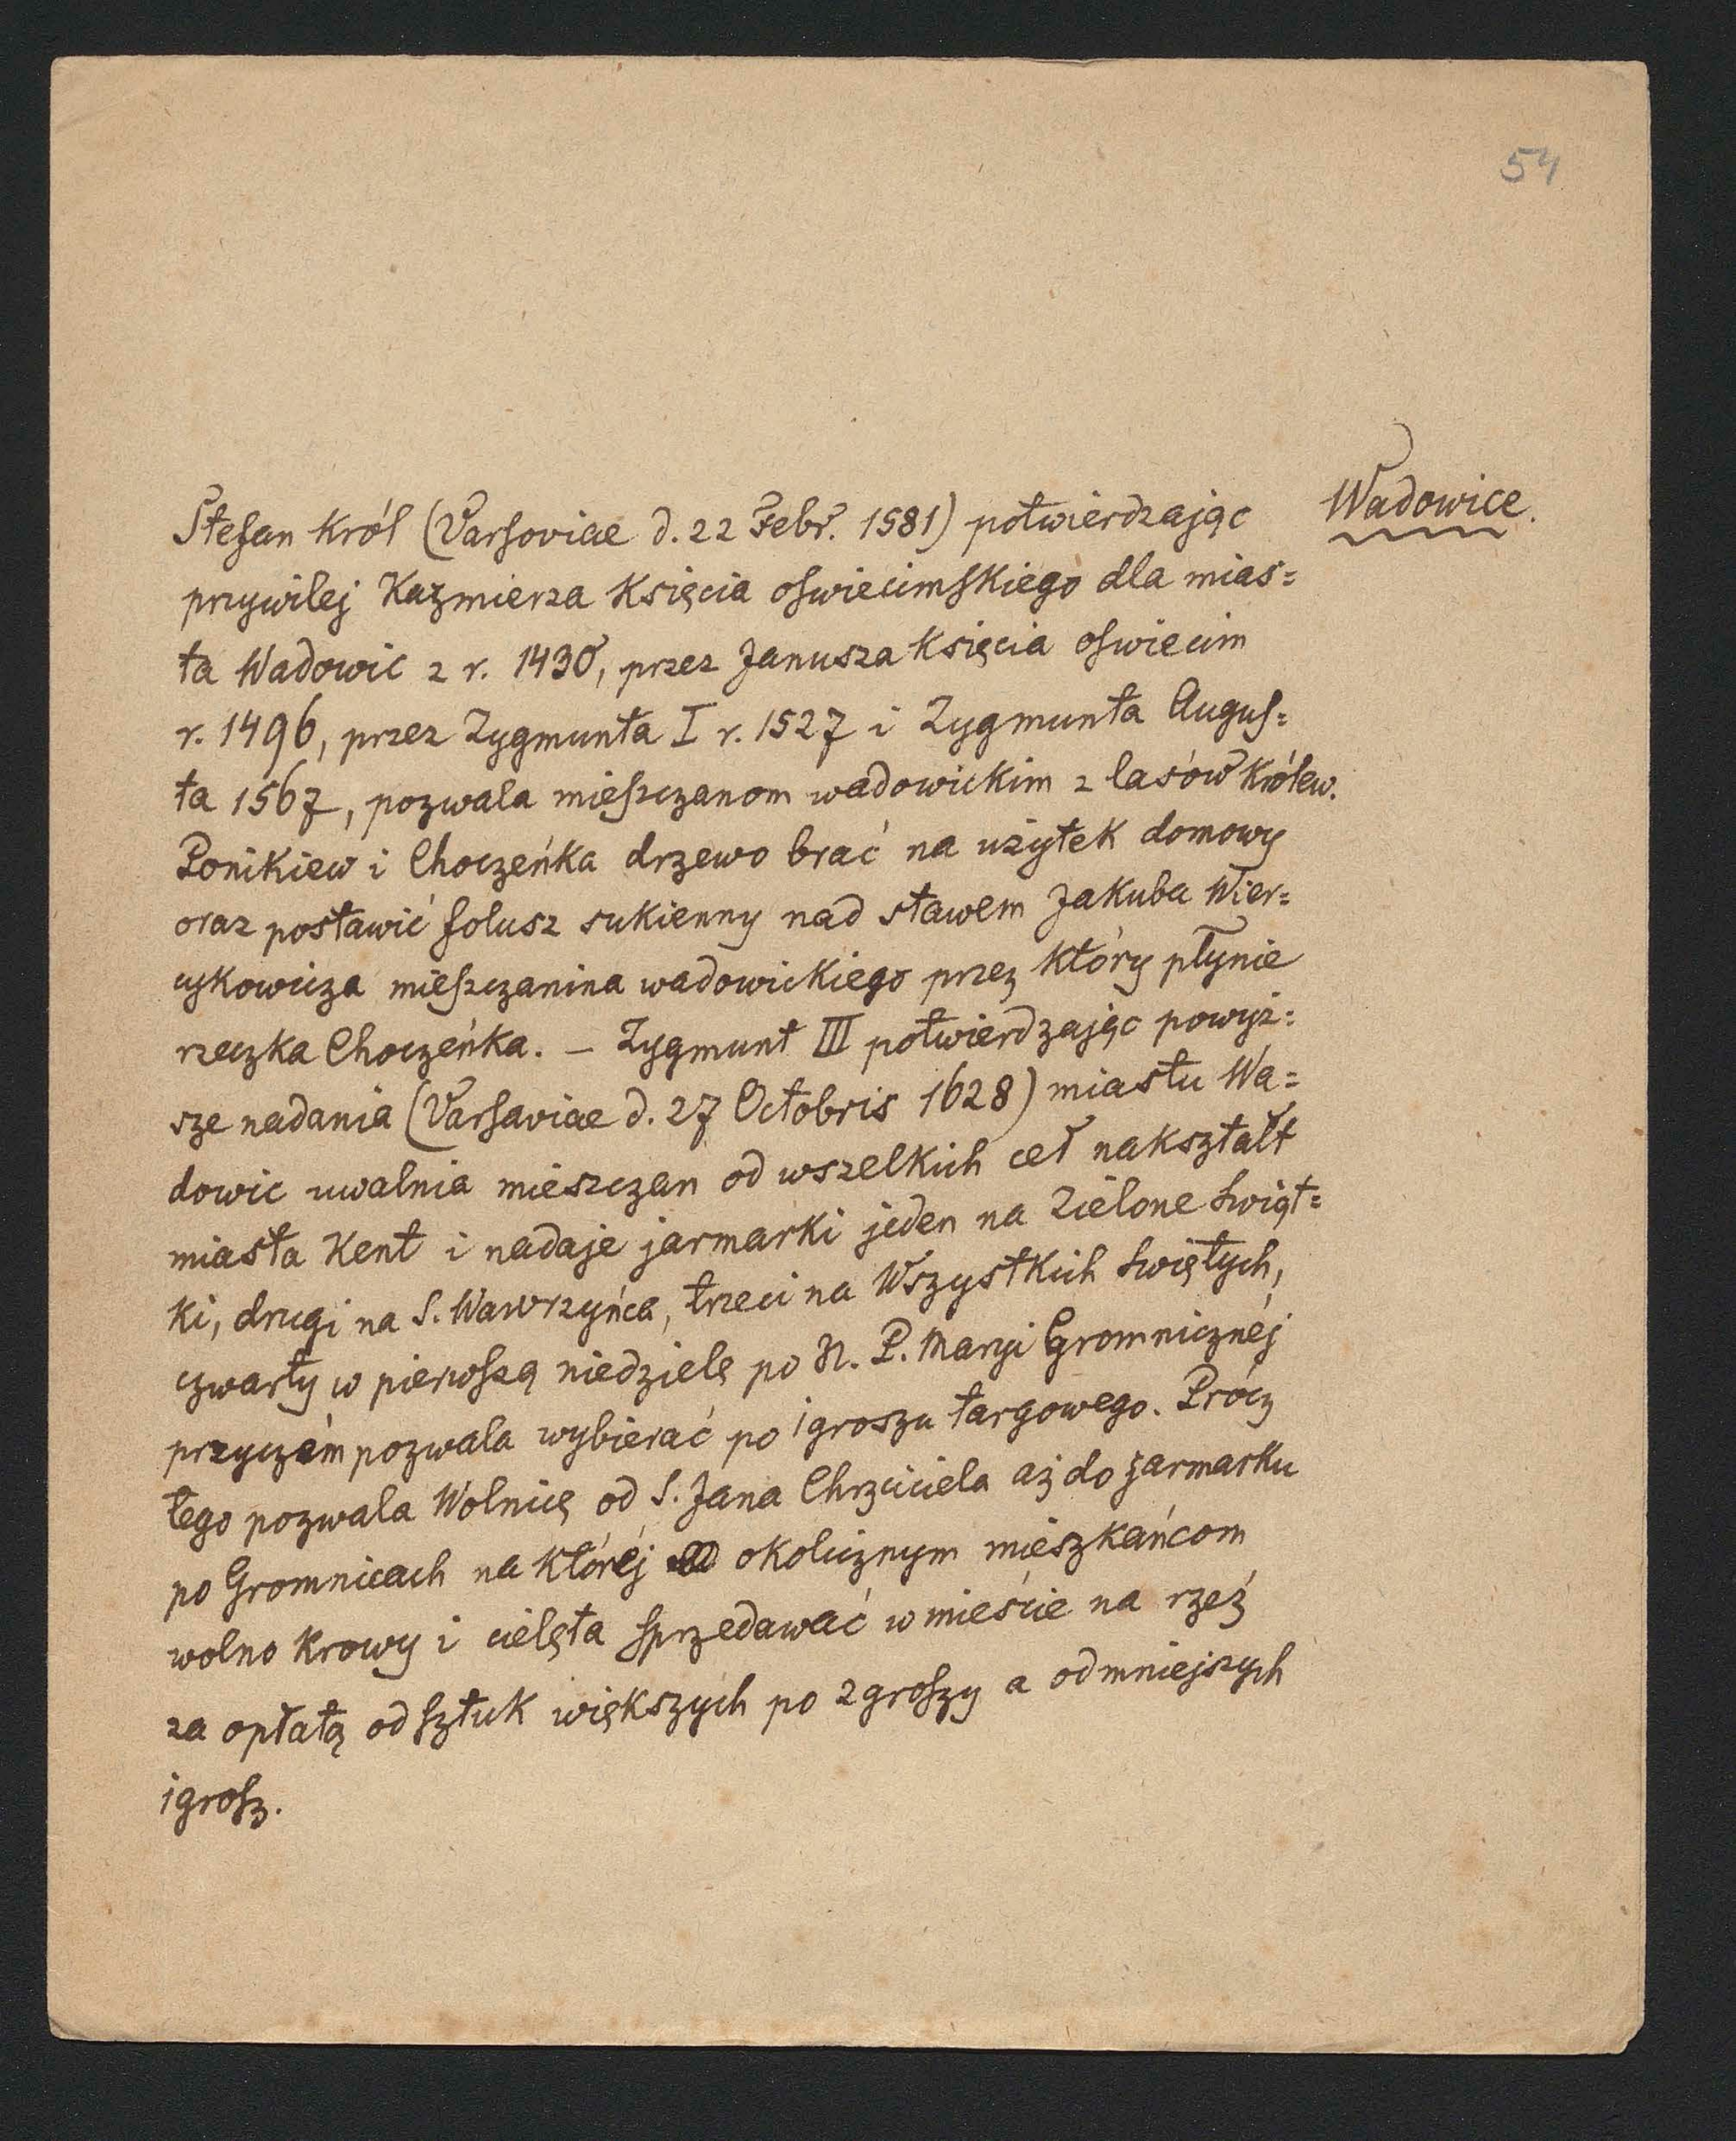 54
Wadowice.
Stefan Król (Varsoviae d. 22 Febr. 1581) potwierdzając
przywilej Kazmierza Księcia oswiecimskiego dla mias=
ta Wadowic z r. 1430, przez Janusza Księcia oswiecim
r. 1496, przez Zygmunta I r. 1527 i Zygmunta Augus=
ta 1567, pozwala mieszczanom wadowickim z lasów Królew.
Ponikiew i Choczeńka drzewo brać na użytek domowy
oraz postawić folusz sukienny nad stawem Jakuba Wier=
cykowicza mieszczanina wadowickiego przez który płynie
rzeczka Choczeńka. – Zygmunt III potwierdzając powyż=
sze nadania (Varsaviae d. 27 Octobris 1628) miastu Wa=
dowic uwalnia mieszczan od wszelkich ceł nakształt
miasta Kent i nadaje jarmarki jeden na Zielone świąt=
ki, drugi na S. Wawrzyńca, trzeci na Wszystkich świętych,
czwarty w pierwszą niedzielę po N. P. Maryi Gromnicznéj
przyczém pozwala wybierać po 1 groszu targowego. Prócz
tego pozwala Wolnicę od S. Jana Chrzciciela aż do jarmarku
po Gromnicach na któréj okolicznym mieszkańcom
wolno Krowy i cielęta sprzedawać w mieście na rzeź
za opłatą od sztuk większych po 2 groszy a od mniejszych
1 grosz.